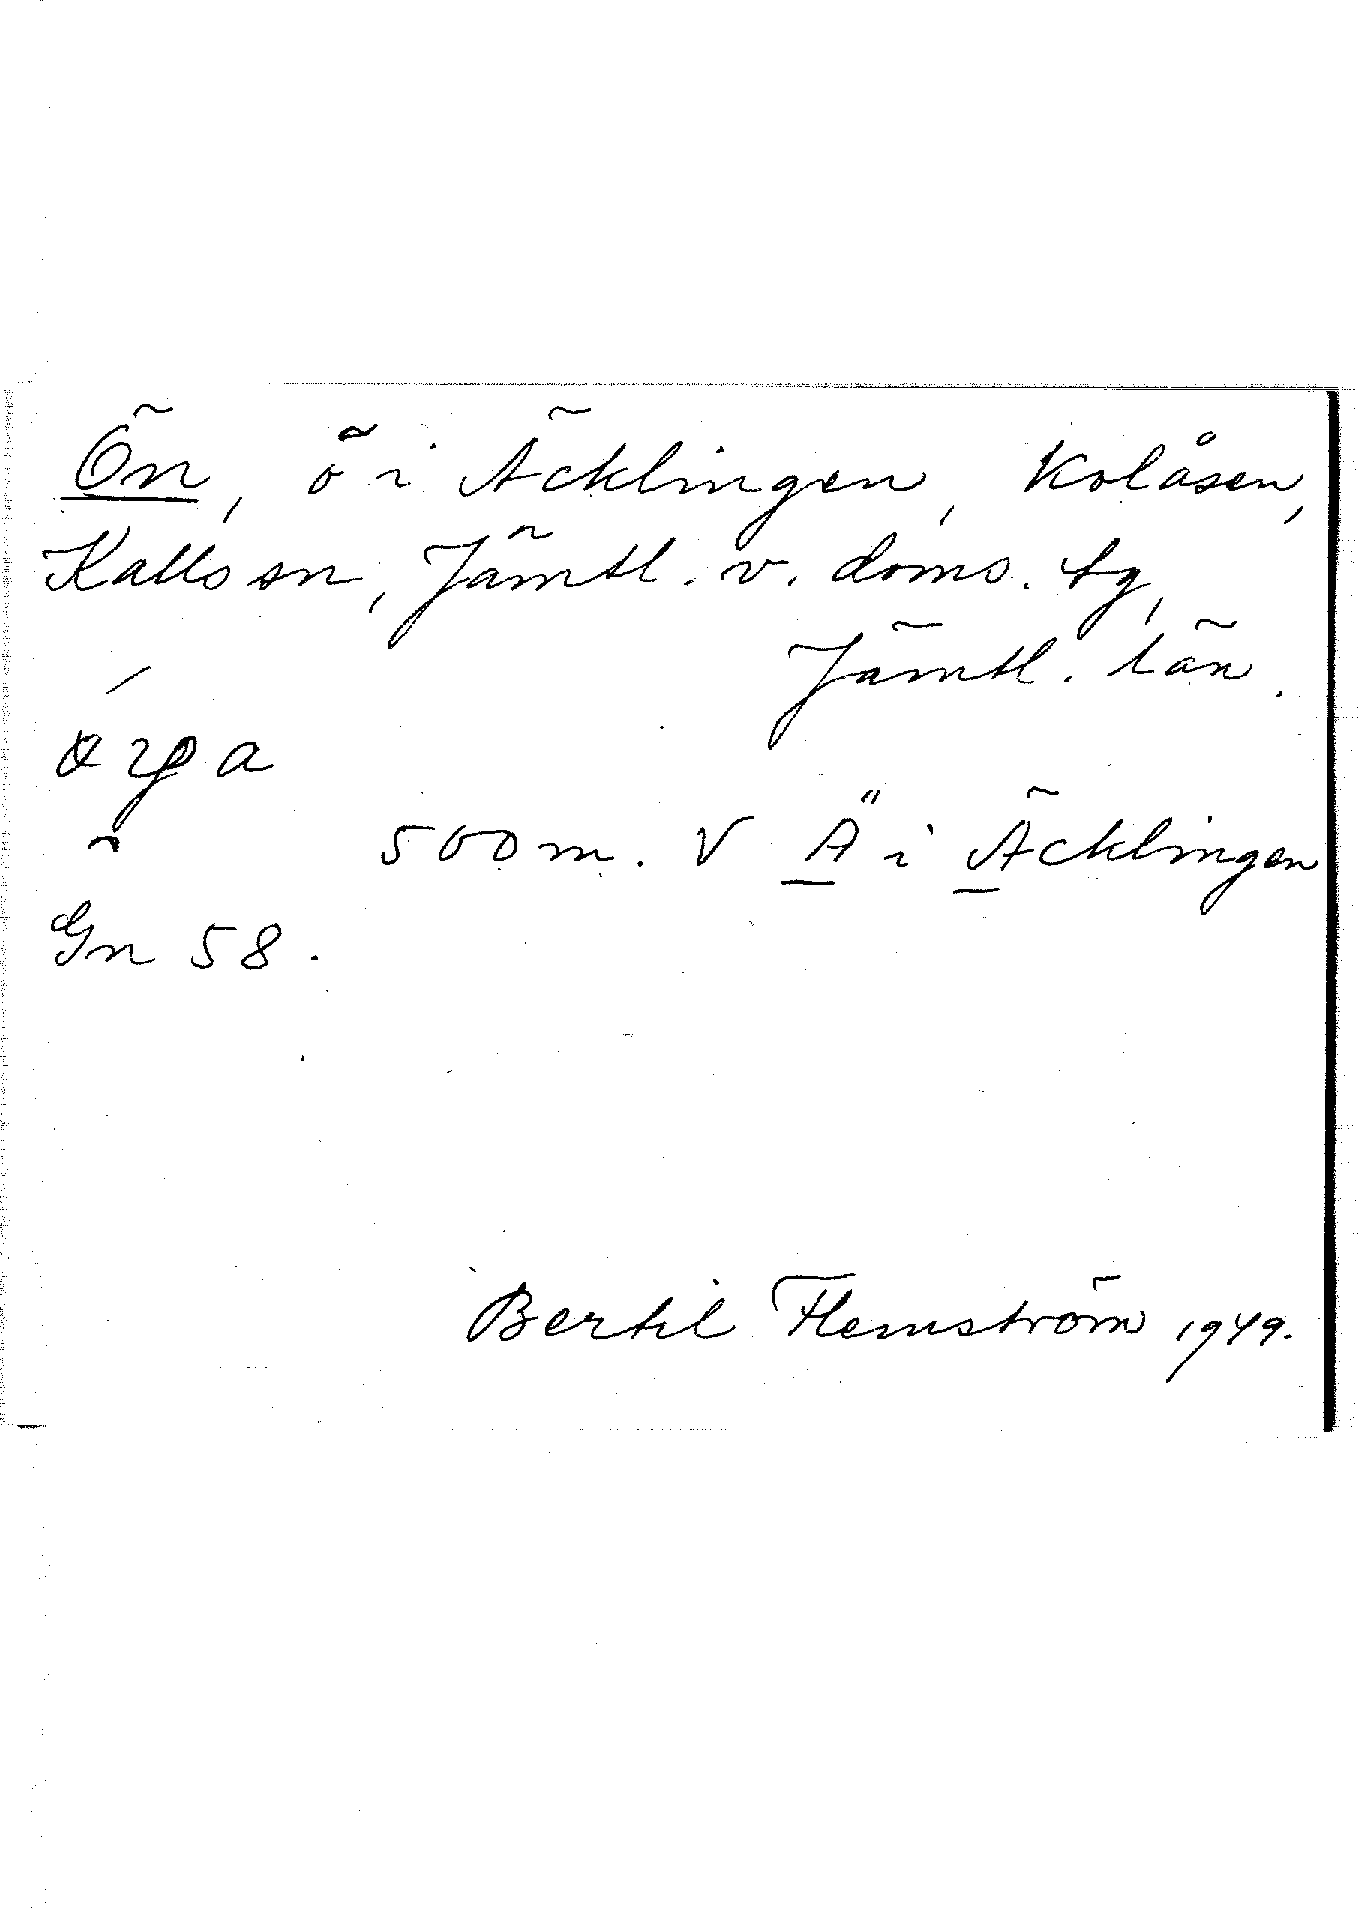 Ön, ö i Äcklingen, Kolåsen,
Kalls sn, Jämtl. v. doms. tg,
Jämtl. län.
500 m. V Ä i Äcklingen
Gn 58.
Bertil Flemström 1949.